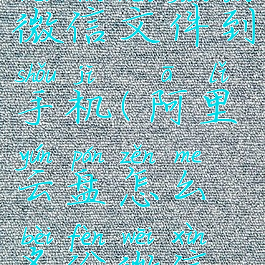 微信文件到
shǒu jī ā lǐ
手机(阿里
yún pán zěn me
云盘怎么
bèi fèn wēi xìn